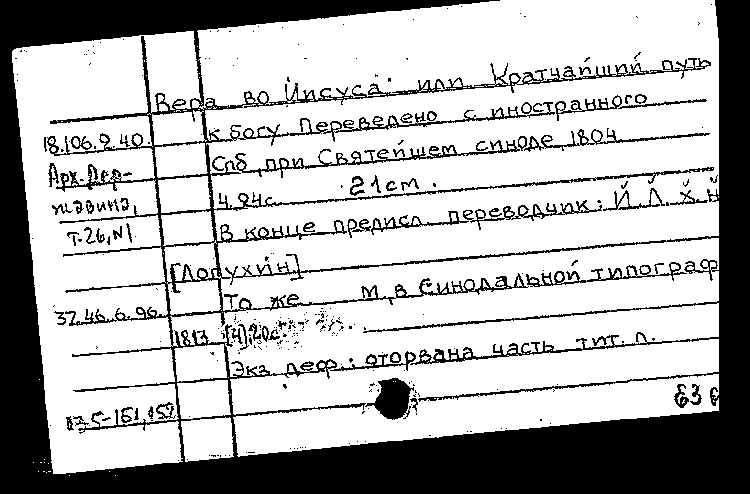 Вера во Иисуса или Кратчайший путь
18.106.2.40. к богу Переведено с иностранного
Арх. Дер- Спб, при Святейшем синоде, 1804
жавина, 4.24с. 21cm.
т.26, N1 В конце предисл переводчик: Й. Л. Х. Н
[Лопухин]
37.46.6.96. То же М, в Синодальной типограф
1813 [4], 20с.
Экз. деф.: оторвана часть тит. л.
63